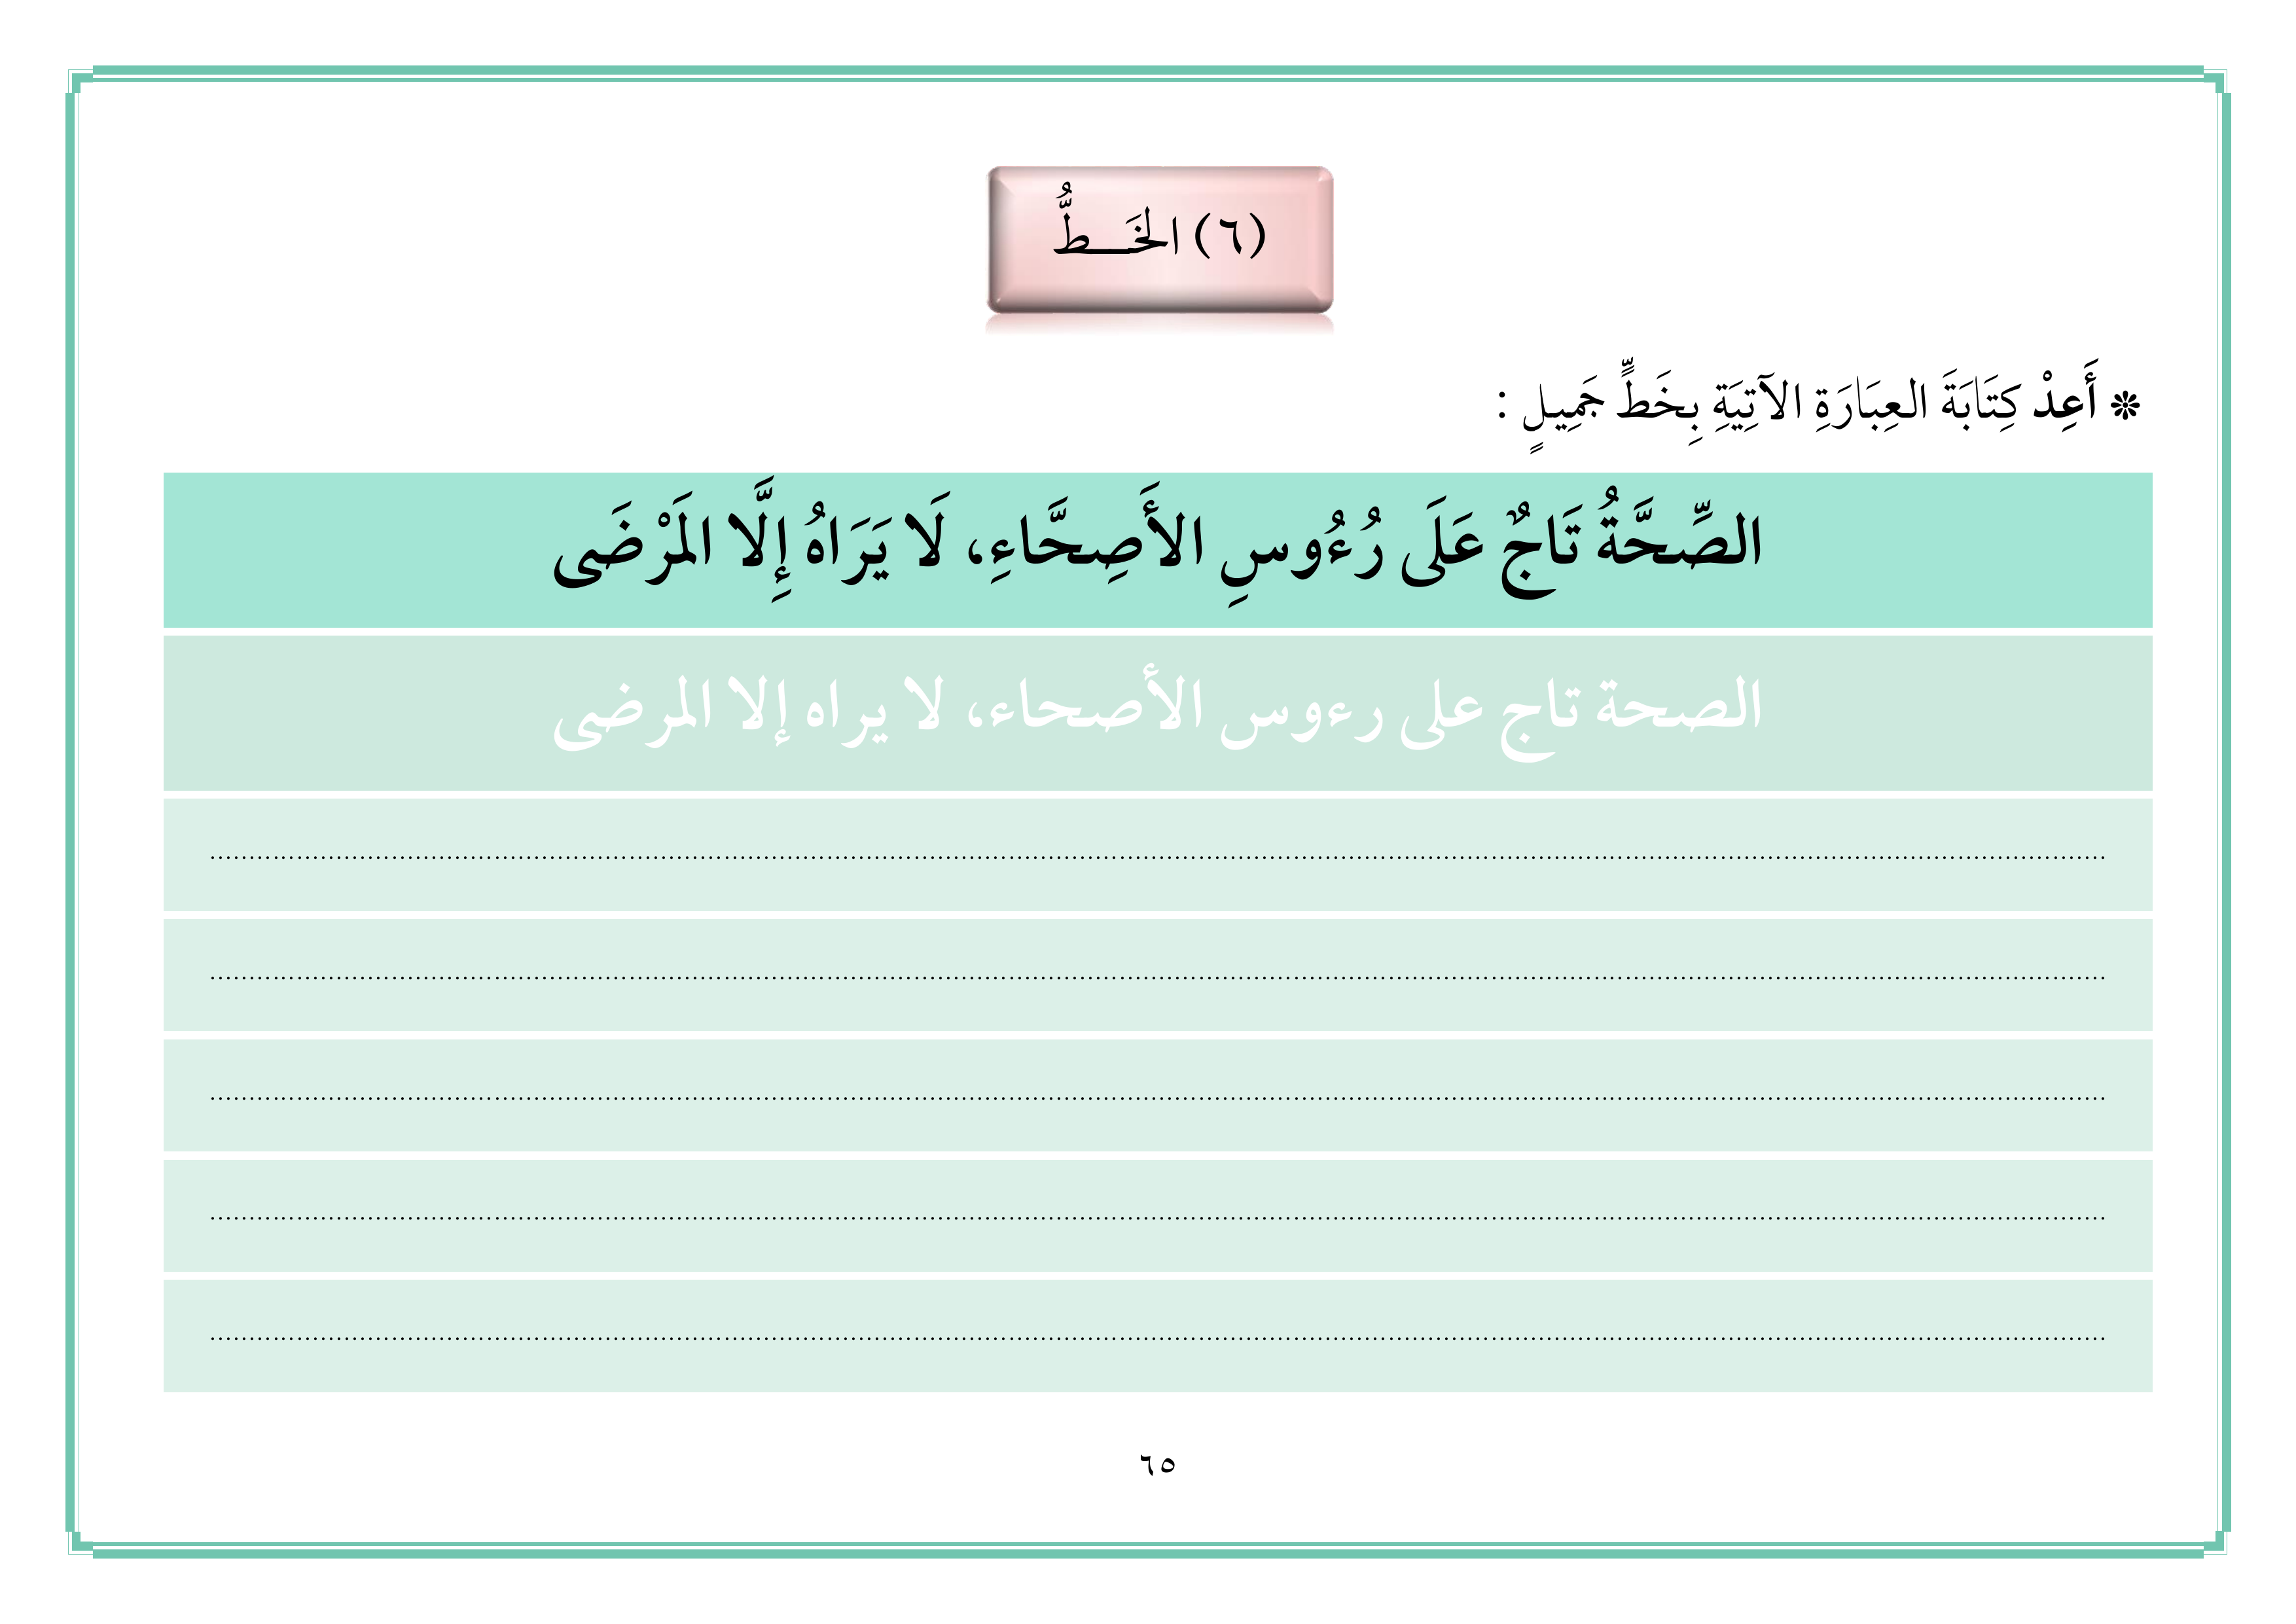 (٦) الخَـــطُّ
❊ أَعِدْ كِتَابَةَ العِبَارَةِ الآتِيَةِ بِخَطٍّ جَمِيلٍ :
الصِّحَّةُ تَاجٌ عَلَى رُءُوسِ الأَصِحَّاءِ، لَا يَرَاهُ إِلَّا المَرْضَى
الصحة تاج على رءوس الأصحاء، لا يراه إلا المرضى
٦٥